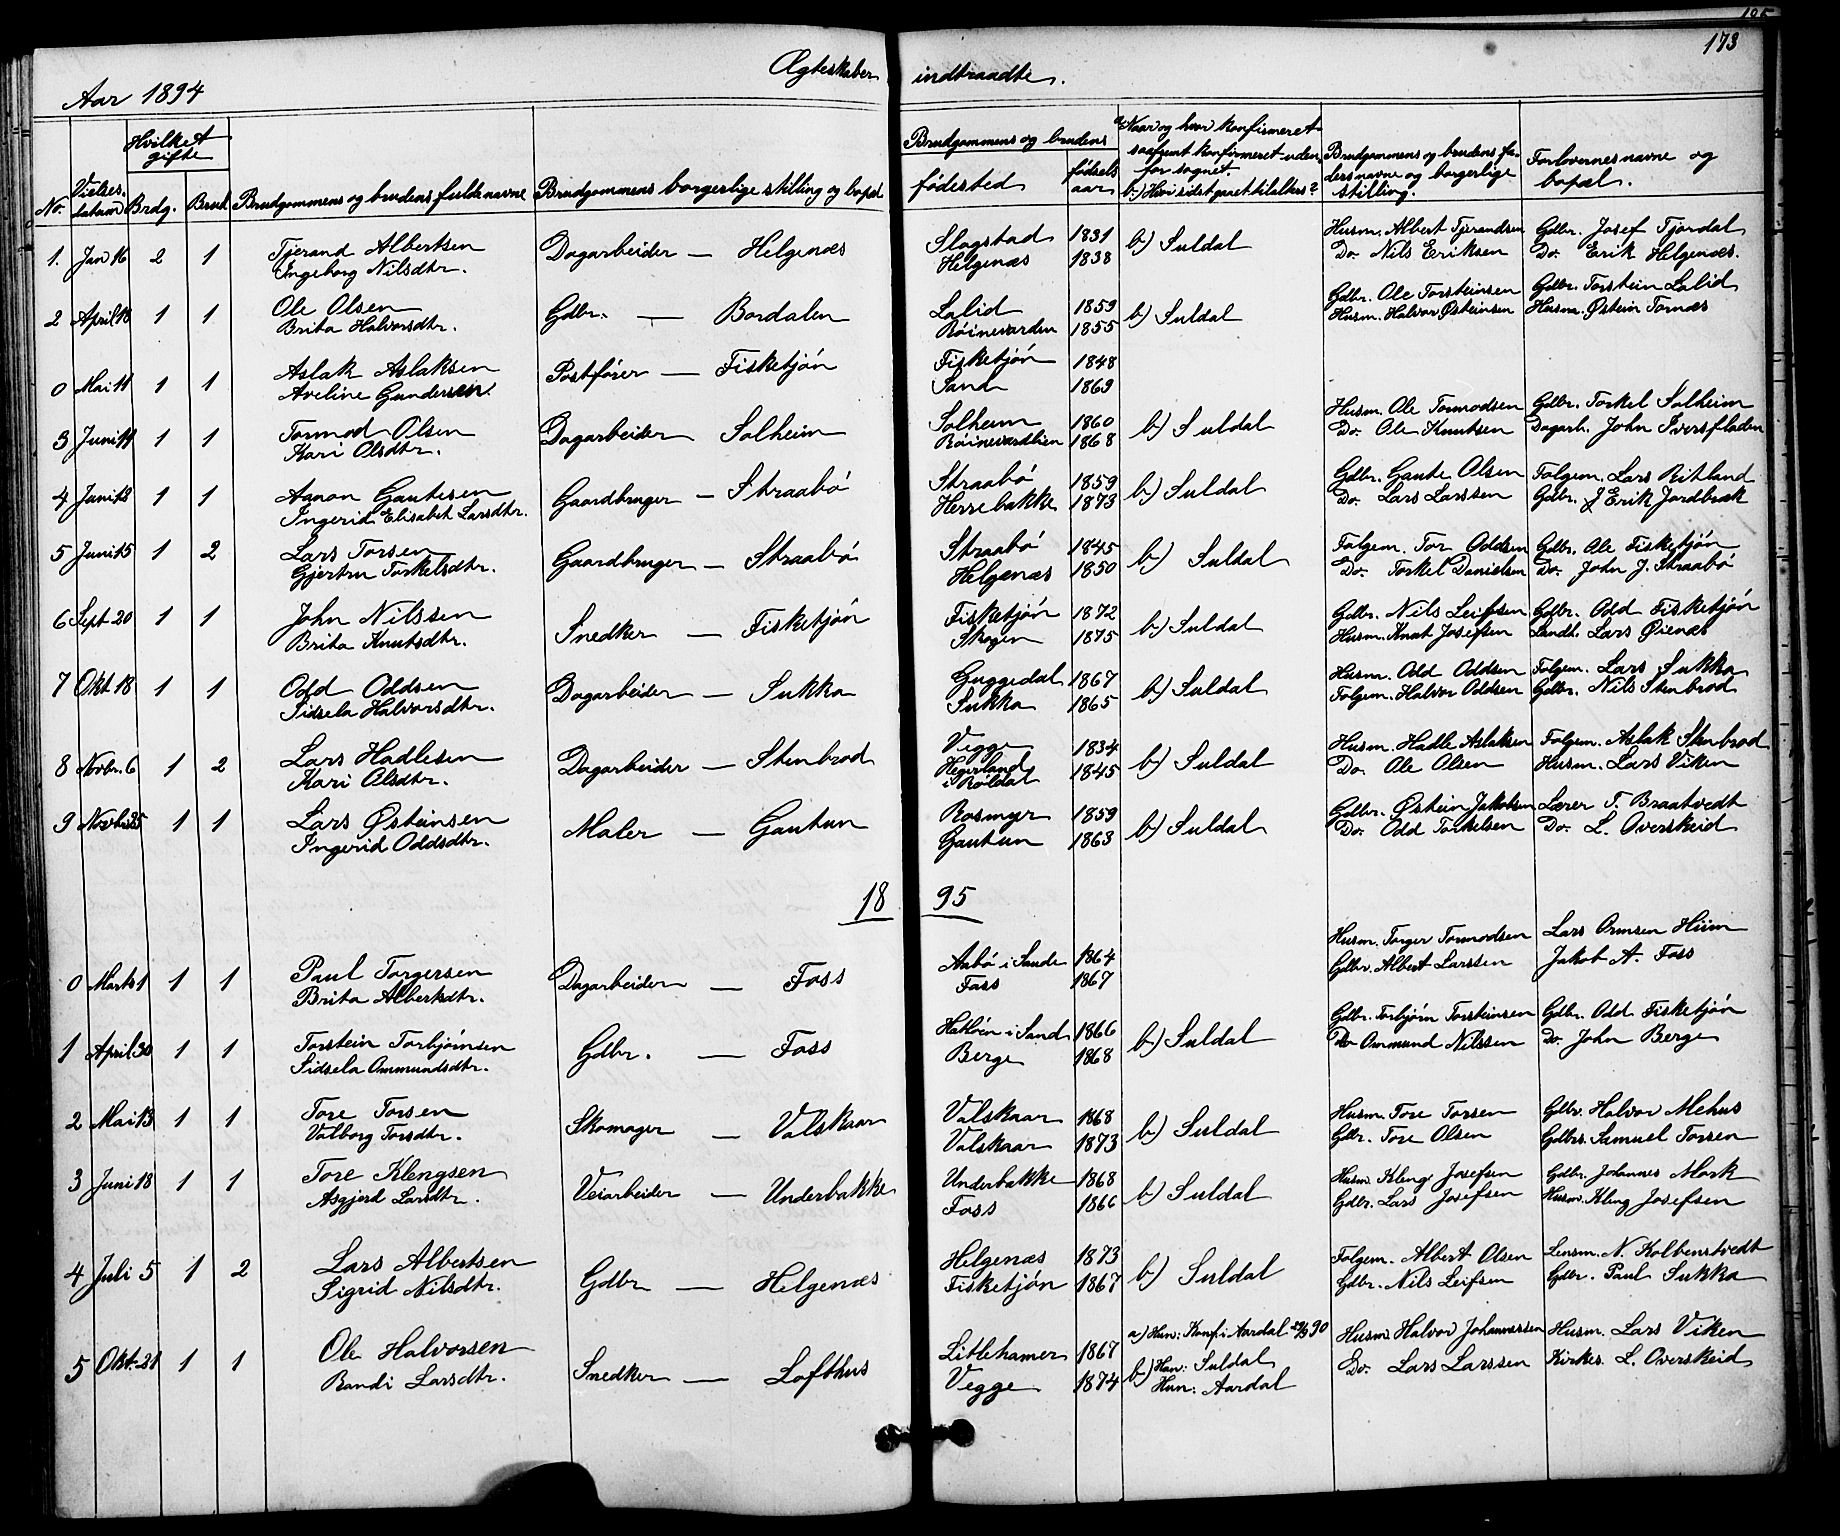 173
Ægteskaber indtraadte.
Aar 1894
No. Vielses-datum Hvilket gifte Brdg. Brud Brudgommens og brudens fulde navne Brudgommens borgerlige stilling og bopæl Brudgommens og brudens fødested fødsels aar a) Naar og hvor konfirmeret saafremt konfirmeret udenfor sognet. b) Hvor sidst gaaet til alters? Brudgommens og brudens faders navne og borgerlige stilling. Forlovernes navne og bopæl.
1. Jan 16 2 1 Tjerand Albertsen Dagarbeider — Helgenæs Slagstad 1831 b) Suldal Husm. Albert Tjerandsen Gdbr. Josef Fjordal
Ingeborg Nilsdtr. Helgenæs 1838 Do. Nils Eriksen Do. Erik Helgenæs.
2 April 18 1 1 Ole Olsen Gdbr. — Bordalen Lalid 1859 b) Suldal Gdbr. Ole Torsteinsen Gdbr. Torstein Lalid
Brita Halvorsdtr. Röinevarden 1855 Husm. Halvor Østeinsen Husm. Østein Tornæs
0 Mai 11 1 1 Aslak Aslaksen Postfører — Fisketjón Fisketjón 1848
Aveline Gundersen. Sand 1869
3 Juni 14 1 1 Tormod Olsen Dagarbeider Solheim Solheim 1860 b) Suldal Husm. Ole Tormodsen Gdbr. Torkel Solheim
Kari Olsdtr. Röinevardlien 1868 Do. Ole Knutsen Dagarb. John Sversfladen
4 Juni 18 1 1 Aanon Gautesen Gaardbruger — Straabó Straabó 1859 b) Suldal Gdbr. Gaute Olsen Folgem. Lars Ritland
Ingerid Elisabet Larsdtr. Herrebakke 1873 Do. Lars Larssen Gdbr. J Erik Jordbræk
5 Juni 15 1 2 Lars Torsen Gaardbruger — Straabó Straabó 1845 b) Suldal Folgem. Tor Oddsen Gdbr. Ole Fisketjón
Gjertru Torkelsdtr. Helgenæs 1850 Do. Torkel Danielsen Do. John J. Straabó
6 Sept 20 1 1 John Nilssen Snedker — Fisketjón Fisketjón 1872 b) Suldal Gdbr. Nils Leifsen Gdbr. Odd Fisketjón
Brita Knutsdtr. Skogen 1875 Husm. Knut Josefsen Landh. Lars Øienæs
7 Okt 18 1 1 Odd Oddsen Dagarbeider — Sukka Guggedal 1867 b) Suldal Husm. Odd Oddsen Folgem. Lars Sukka
Sidsela Halvorsdtr. Sukka 1865 Folgem. Halvor Oddsen Gdbr. Nils Stenbrod
8 Novbr. 6 1 2 Lars Hadlesen Dagarbeider — Stenbrod Vegge 1834 b) Suldal Husm. Hadle Aslaksen Folgem. Aslak Stenbrod
Kari Olsdtr. Hegerland i Röldal 1845 Do. Ole Olsen Husm. Lars Viken
9 Novbr. 25 1 1 Lars Østeinsen Maler — Gautun Rosmyr 1859 b) Suldal Gdbr. Østein Jakobsen Lærer T. Braatvedt
Ingerid Oddsdtr. Gautun 1863 Do. Odd Torkelsen Do. L. Overskeid
18 95
0 Marts 1 1 1 Paul Torgersen Dagarbeider — Foss Aabó i Sande 1864 Husm. Torger Tormodsen Lars Ormsen Hiim
Brita Albertsdtr. Foss 1867 Gdbr. Albert Larssen Jakob A. Foss
1 April 30 1 1 Torstein Torbjórnsen Gdbr. — Foss Hatlöen i Sand 1866 b) Suldal Gdbr. Torbjórn Torsteinsen Gdbr. Odd Fisketjón
Sidsela Ommundsdtr. Berge 1868 Do Ommund Nilssen Do. John Berge
2 Mai 13 1 1 Tore Torsen Skomager — Valskaar Valskaar 1868 b) Suldal Husm. Tore Torsen Gdbr. Halvor Mehus
Valborg Torsdtr. Valskaar 1873 Gdbr. Tore Olsen Gdbrs. Samuel Torsen
3 Juni 18 1 1 Tore Klengsen Veiarbeider — Underbakke Underbakke 1868 b) Suldal Husm. Kleng Josefsen Gdbr. Johannes Mork
Asgjerd Larsdtr. Foss 1866 Gdbr. Lars Josefsen Husm. Kleng Josefsen
4 Juli 5 1 2 Lars Albertsen Gdbr — Helgenæs Helgenæs 1873 b) Suldal Folgem. Albert Olsen Lensm. N. Kolbenstvedt
Sigrid Nilsdtr. Fisketjón 1867 Gdbr. Nils Leifsen Gdbr. Paul Sukka
5 Okt. 21 1 1 Ole Halvorsen Snedker — Lofthus Litlehamer 1867 a) Hun: Konf. i Aardal 28/9 90 Husm. Halvor Johannessen Husm. Lars Viken
Randi Larsdtr. Vegge 1874 b) Han: Suldal Hun: Aardal Do. Lars Larssen Kirkes. L. Overskeid